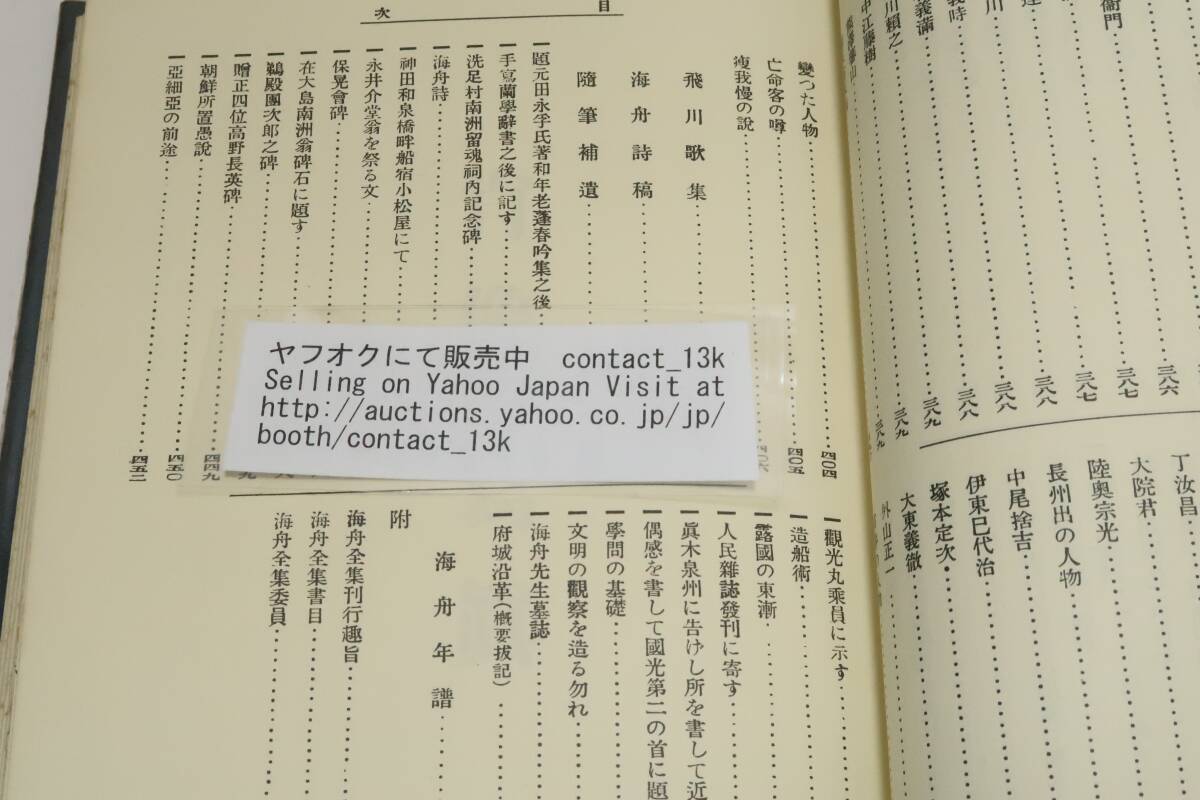 丁汝昌
大院君
陸奥宗光
長州出の人物
中尾捨吉
伊東巳代治
塚本定次
大東義徹
外山正一
衞門
義時
川賴之
義滿
中江藤樹
三八六
三八七
三八七
三八八
三八八
三八八
三八九
三八九
三八九
目次
變つた人物 四〇四
亡命客の噂 四〇五
瘦我慢の說
飛川歌集
海舟詩稿
隨筆補遺
題元田永孚氏著和年老蓬春吟集之後
手寫蘭學辭書之後に記す
洗足村南洲留魂祠內記念碑
海舟詩
神田和泉橋畔船宿小松屋にて
永井介堂翁を祭る文
保晃會碑
在大島南洲翁碑石に題す
鵜殿團次郎之碑
贈正四位高野長英碑
朝鮮所置愚說 四四九
亞細亞の前途 四五〇
四五二
觀光丸乘員に示す
造船術
露國の東漸
人民雜誌發刊に寄す
眞木泉州に告げし所を書して近
偶感を書して國光第二の首に題
學問の基礎
文明の觀察を造る勿れ
海舟先生墓誌
府城沿革(槪要拔記)
海舟年譜
附
海舟全集刊行趣旨
海舟全集書目
海舟全集委員
ヤフオクにて販売中 contact_13k
Selling on Yahoo Japan Visit at
http://auctions.yahoo.co.jp/jp/
booth/contact_13k